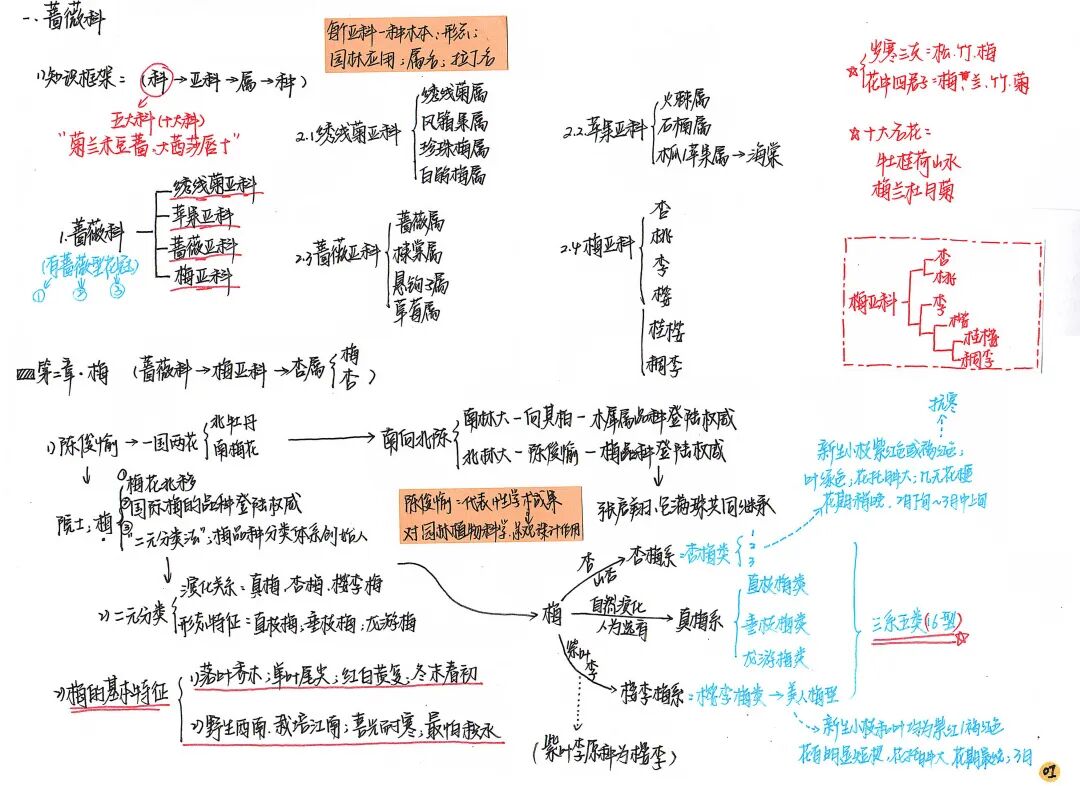 一、蔷薇科
每个亚科一种木本：形态；
园林应用；属名；拉丁名
1)知识框架=（科→亚科→属→种）
五大科(十大科)
"菊兰木豆蔷、大茜莎唇十"
1.蔷薇科
(有蔷薇型花冠)
① ② ③
绣线菊亚科
苹果亚科
蔷薇亚科
梅亚科
2.1绣线菊亚科
绣线菊属
风箱果属
珍珠梅属
白鹃梅属
2.2苹果亚科
火棘属
石楠属
木瓜/苹果属→海棠
2.3蔷薇亚科
蔷薇属
棣棠属
悬钩子属
草莓属
2.4梅亚科
杏
桃
李
樱
桂樱
稠李
☆岁寒三友=松、竹、梅
花中四君子=梅、兰、竹、菊
☆十大名花=
牡桂荷山水
梅兰杜月菊
梅亚科
杏
桃
李
樱
桂樱
稠李
第二章·梅 （蔷薇科→梅亚科→杏属
梅
杏）
1)陈俊愉→一国两花
北牡丹
南梅花
南向北陈
南林大-向其柏-木犀属品种登陆权威
北林大-陈俊愉-梅品种登陆权威
张启翔、包满珠共同继承
院士；梅
①梅花北移
②国际梅的品种登陆权威
③"二元分类法"；梅品种分类体系创始人
陈俊愉=代表性学术成果
对园林植物科学、景观设计作用
2)二元分类
演化关系=真梅、杏梅、樱李梅
形态特征=直枝梅；垂枝梅；龙游梅
梅
杏
山杏
杏梅系=杏梅类
1
2
3
自然演化
人为选育
真梅系
直枝梅类
垂枝梅类
龙游梅类
紫叶李
樱李梅系=樱李梅类→美人梅型
(紫叶李原种为樱李)
三系五类(16型)
抗寒
新生小枝紫红色或褐红色；
叶绿色；花托肿大；几无花梗
花期稍晚，2月下旬~3月中上旬
新生小枝和叶均为紫红/褐红色
花有明显短梗，花托肿大 花期最晚；3月
3)梅的基本特征
1)落叶乔木；单叶尾尖；红白黄复；冬末春初
2)野生西南、栽培江南；喜光耐寒，最怕积水
01